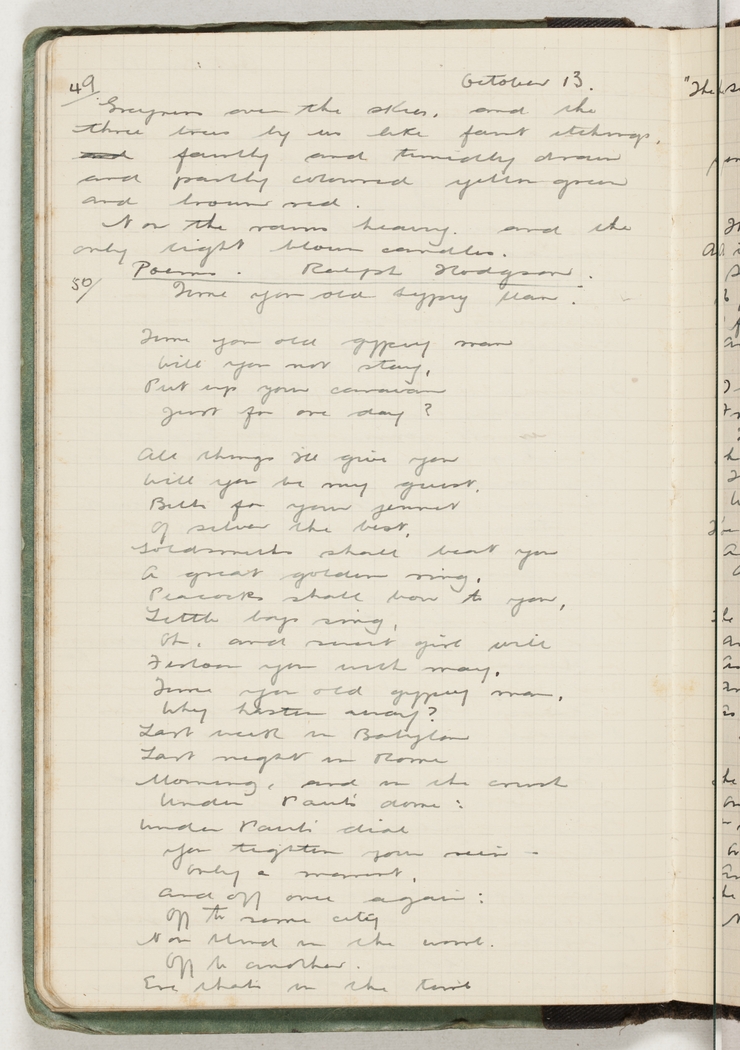 49/ October 13.
Greyness over the skies, and the
three trees by us like faint etchings,
and faintly and timidly drawn
and partly coloured yellow green
and brown red.
Now the rains heavy. and the
only light blown candles.
Poems. Ralph Hodgson.
50/ Time you old Gypsy Man.
Time you old gypsy man
Will you not stay,
Put up your caravan
Just for one day?
All things I'll give you
Will you be my guest,
Bells for your jennet
Of silver the best,
Goldsmiths shall beat you
A great golden ring,
Peacocks shall bow to you,
Little boys sing,
Oh, and sweet girls will
Festoon you with may,
Time you old gypsy man,
Why hasten away?
Last week in Babylon
Last night in Rome
Morning, and in the crush
Under Paul's dome:
Under Paul's dial
You tighten your rein -
Only a moment,
And off once again:
Off to some city
Now blind in the womb.
Off to another.
Ere that's in the tomb